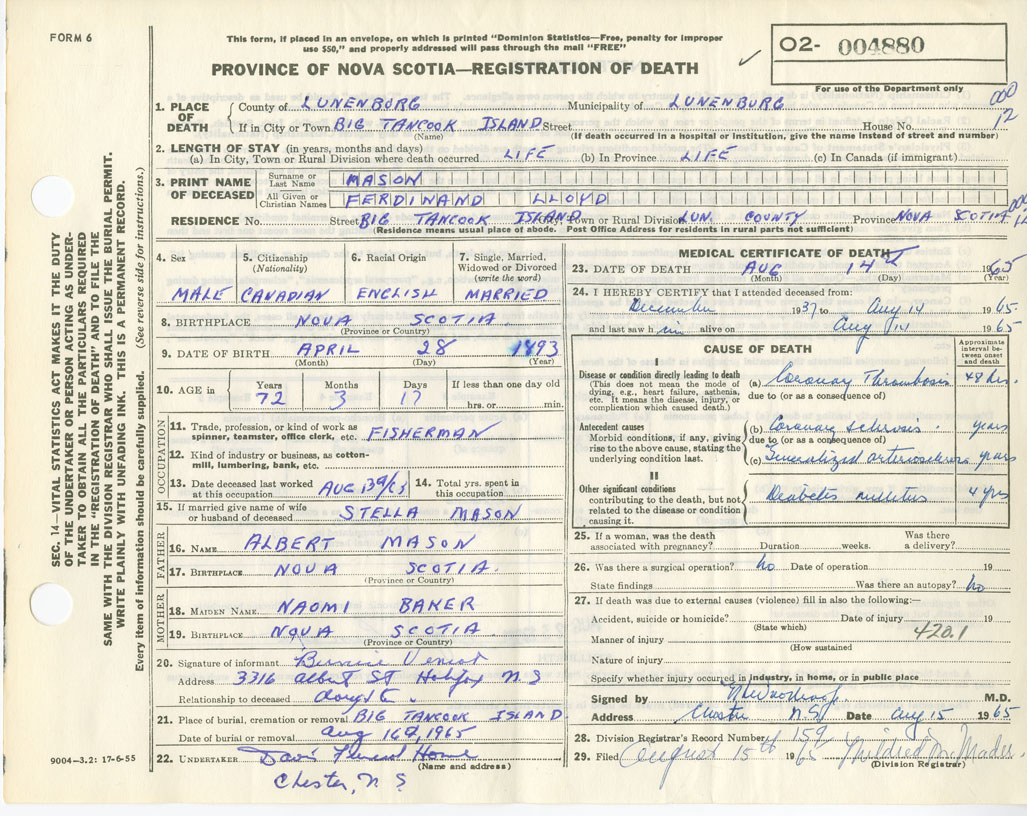 FORM 6
This form, if placed in an envelope, on which is printed "Dominion Statistics—Free, penalty for improper
use $50," and properly addressed will pass through the mail "FREE"
PROVINCE OF NOVA SCOTIA—REGISTRATION OF DEATH
02- 004880
For use of the Department only
000
12
1. PLACE OF DEATH County of LUNENBURG Municipality of LUNENBURG
If in City or Town BIG TANCOOK ISLAND Street House No.
(Name) (If death occurred in a hospital or institution, give the name instead of street and number)
2. LENGTH OF STAY (in years, months and days)
(a) In City, Town or Rural Division where death occurred LIFE (b) In Province LIFE (c) In Canada (if immigrant)
3. PRINT NAME OF DECEASED
Surname or Last Name MASON
All Given or Christian Names FERDINAND LLOYD
RESIDENCE No. Street BIG TANCOOK ISLAND City, Town or Rural Division LUN. COUNTY Province NOVA SCOTIA
000
12
(Residence means usual place of abode. Post Office Address for residents in rural parts not sufficient)
4. Sex 5. Citizenship (Nationality) 6. Racial Origin 7. Single, Married, Widowed or Divorced (write the word)
MALE CANADIAN ENGLISH MARRIED
8. BIRTHPLACE NOVA SCOTIA.
(Province or Country)
9. DATE OF BIRTH APRIL 28 1893
(Month) (Day) (Year)
10. AGE in Years Months Days If less than one day old
72 3 17 hrs. or min.
OCCUPATION
11. Trade, profession, or kind of work as
spinner, teamster, office clerk, etc. FISHERMAN
12. Kind of industry or business, as cotton-
mill, lumbering, bank, etc.
13. Date deceased last worked
at this occupation AUG 13th/65
14. Total yrs. spent in
this occupation
15. If married give name of wife
or husband of deceased STELLA MASON
FATHER
16. NAME ALBERT MASON
17. BIRTHPLACE NOVA SCOTIA.
(Province or Country)
MOTHER
18. MAIDEN NAME NAOMI BAKER
19. BIRTHPLACE NOVA SCOTIA
(Province or Country)
20. Signature of informant
Address 3316 Albert St Halifax N S
Relationship to deceased
21. Place of burial, cremation or removal BIG TANCOOK ISLAND
Date of burial or removal Aug 16th, 1965
22. UNDERTAKER Davis Funeral Home
(Name and address)
Chester, N. S.
MEDICAL CERTIFICATE OF DEATH
23. DATE OF DEATH AUG 14th 1965
(Month) (Day) (Year)
24. I HEREBY CERTIFY that I attended deceased from:
December 1937 to Aug 14 1965.
and last saw him alive on Aug 14 1965
CAUSE OF DEATH
Approximate interval between onset and death
I
Disease or condition directly leading to death
(This does not mean the mode of
dying, e.g., heart failure, asthenia,
etc. It means the disease, injury, or
complication which caused death.)
(a) Coronary Thrombosis 48 hrs.
due to (or as a consequence of)
Antecedent causes
Morbid conditions, if any, giving
rise to the above cause, stating the
underlying condition last.
(b) Coronary sclerosis. years
due to (or as a consequence of)
(c) Generalized arteriosclerosis years
II
Other significant conditions
contributing to the death, but not
related to the disease or condition
causing it.
Diabetes mellitus 4 yrs
25. If a woman, was the death
associated with pregnancy? Duration weeks. Was there
a delivery?
26. Was there a surgical operation? no Date of operation 19
State findings Was there an autopsy? no
27. If death was due to external causes (violence) fill in also the following:—
Accident, suicide or homicide? Date of injury 19
(State which)
420.1
Manner of injury
(How sustained
Nature of injury
Specify whether injury occurred in industry, in home, or in public place
Signed by M.D.
Address Chester N.S. Date Aug 15 1965
28. Division Registrar's Record Number 159
29. Filed August 15th 1965 Mildred M. Mader
(Division Registrar)
SEC. 14—VITAL STATISTICS ACT MAKES IT THE DUTY
OF THE UNDERTAKER OR PERSON ACTING AS UNDER-
TAKER TO OBTAIN ALL THE PARTICULARS REQUIRED
IN THE "REGISTRATION OF DEATH" AND TO FILE THE
SAME WITH THE DIVISION REGISTRAR WHO SHALL ISSUE THE BURIAL PERMIT.
WRITE PLAINLY WITH UNFADING INK. THIS IS A PERMANENT RECORD.
Every item of information should be carefully supplied. (See reverse side for instructions.)
9004—3.2: 17-6-55